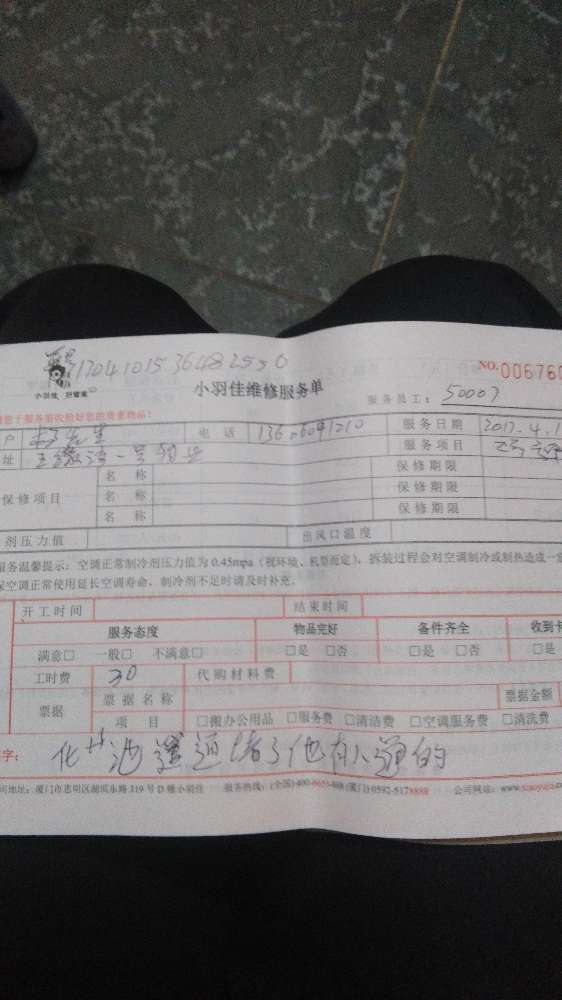 1704101536482550
小羽佳 好管家
小羽佳维修服务单
NO.006760
服务员工：50007
您于服务前收拾好您的贵重物品：
户 先生 电 话 服务日期 2017.4.1
址 一号 服务项目
保修项目 名 称 保修期限
名 称 保修期限
名 称 保修期限
剂压力值 出风口温度
服务温馨提示：空调正常制冷剂压力值为 0.45mpa（视环境、机型而定），拆装过程会对空调制冷或制热造成一
保空调正常使用延长空调寿命，制冷剂不足时请及时补充。
开工时间 结束时间
服务态度 物品完好 备件齐全 收到
满意□ 一般□ 不满意□ □是 □否 □是 □否 □是
工时费 30 代购材料费
票据 票 据 名 称 票据金额
项 目 □搬办公用品 □服务费 □清洁费 □空调服务费 □清洗费
字： 池 通 堵了他有人通的
司地址：厦门市思明区湖滨东路 319 号 D 幢小羽佳 服务热线：(全国)400-6655-888 (厦门)0592-5178888 公司网站：www.xiaoyujia